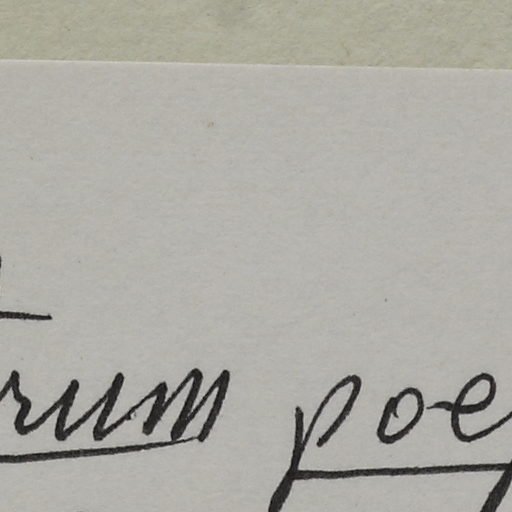 rum poe